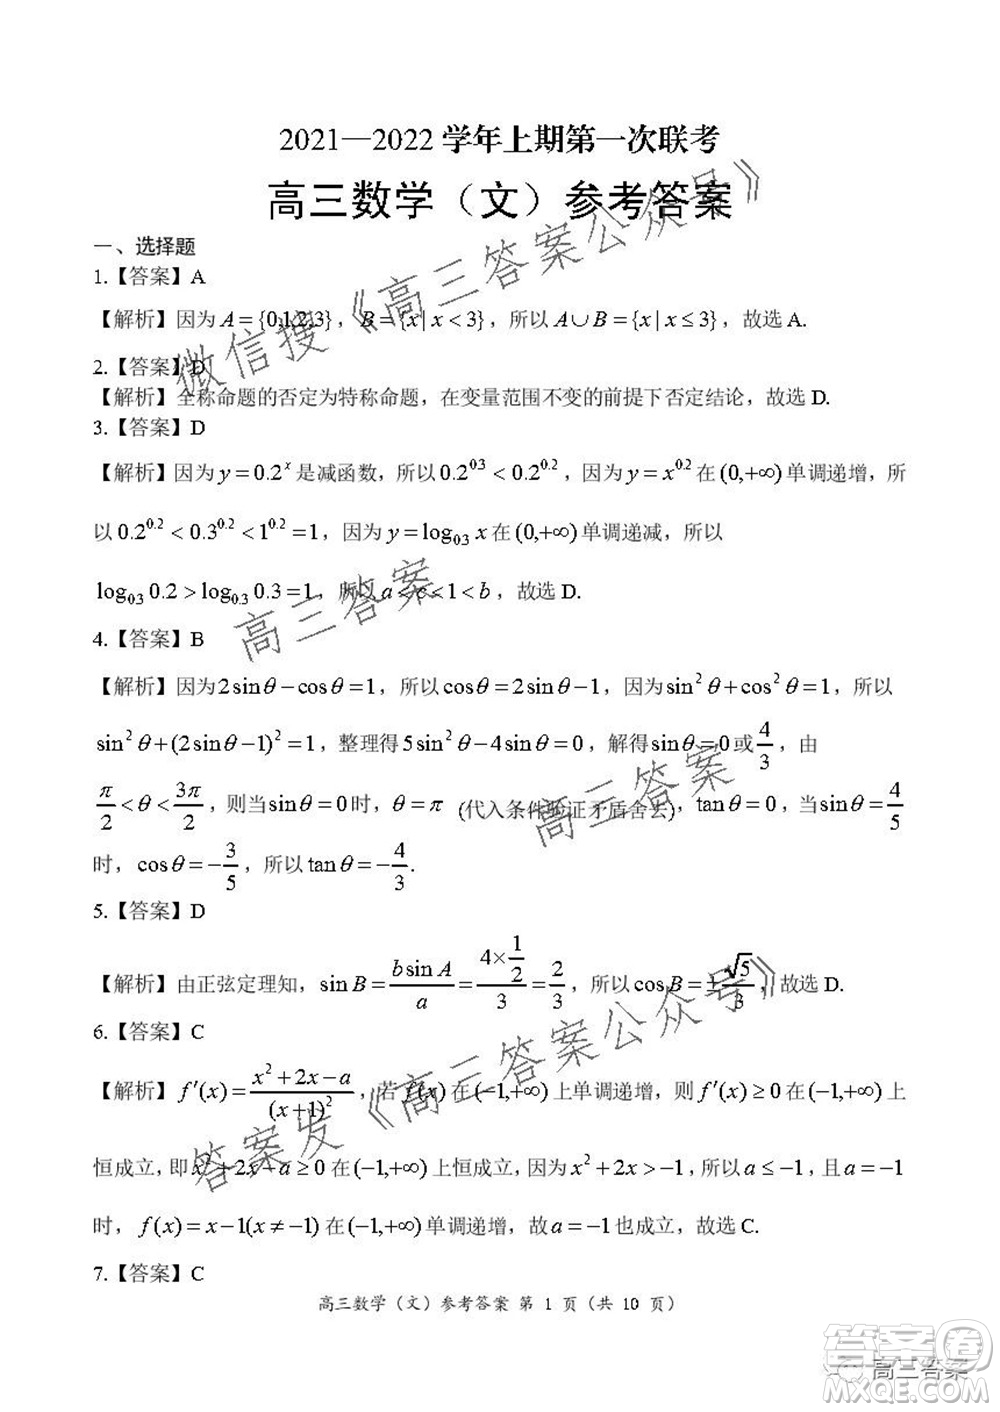 2021—2022 学年上期第一次联考
高三数学（文）参考答案
一、选择题
1.【答案】A
【解析】因为 A={0,1,2,3}，B={x|x<3}，所以 A∪B={x|x≤3}，故选 A.
2.【答案】D
【解析】全称命题的否定为特称命题，在变量范围不变的前提下否定结论，故选 D.
3.【答案】D
【解析】因为 y=0.2^x 是减函数，所以 0.2^0.3<0.2^0.2，因为 y=x^0.2 在 (0,+∞) 单调递增，所
以 0.2^0.2<0.3^0.2<1^0.2=1，因为 y=log_0.3 x 在 (0,+∞) 单调递减，所以
log_0.3 0.2>log_0.3 0.3=1，所以 a<c<1<b，故选 D.
4.【答案】B
【解析】因为 2sinθ−cosθ=1，所以 cosθ=2sinθ−1，因为 sin²θ+cos²θ=1，所以
sin²θ+(2sinθ−1)²=1，整理得 5sin²θ−4sinθ=0，解得 sinθ=0 或 4/3，由
π/2<θ<3π/2，则当 sinθ=0 时，θ=π (代入条件验证矛盾舍去)，tanθ=0，当 sinθ=4/5
时，cosθ=−3/5，所以 tanθ=−4/3.
5.【答案】D
【解析】由正弦定理知，sin B=(b sin A)/a=(4×1/2)/3=2/3，所以 cos B=±√5/3，故选 D.
6.【答案】C
【解析】f′(x)=(x²+2x−a)/(x+1)²，若 f(x) 在 (−1,+∞) 上单调递增，则 f′(x)≥0 在 (−1,+∞) 上
恒成立，即 x²+2x−a≥0 在 (−1,+∞) 上恒成立，因为 x²+2x>−1，所以 a≤−1，且 a=−1
时，f(x)=x−1(x≠−1) 在 (−1,+∞) 单调递增，故 a=−1 也成立，故选 C.
7.【答案】C
高三数学（文）参考答案 第 1 页（共 10 页）
微信搜《高三答案公众号》
高三答案
高三答案
答案发《高三答案公众号》
高三答案
答案卷
MXQE.COM